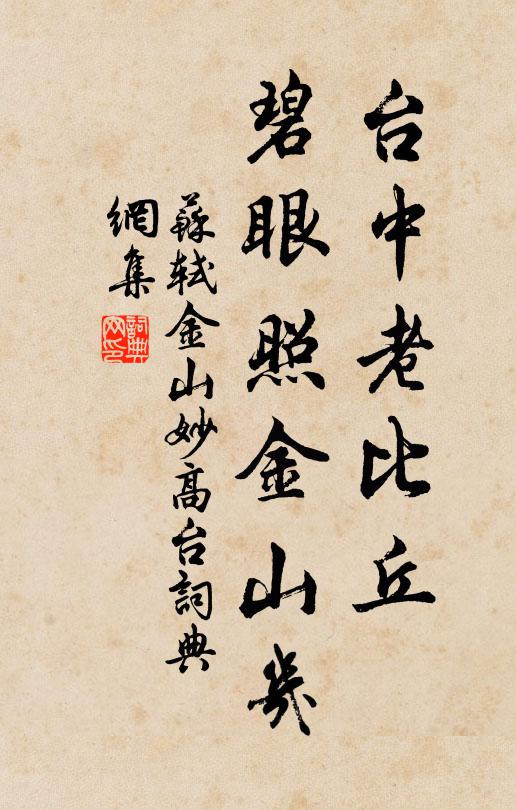 台中老比丘
碧眼照金山幾
蘇軾金山妙高台詞典
網集
詞典
网印